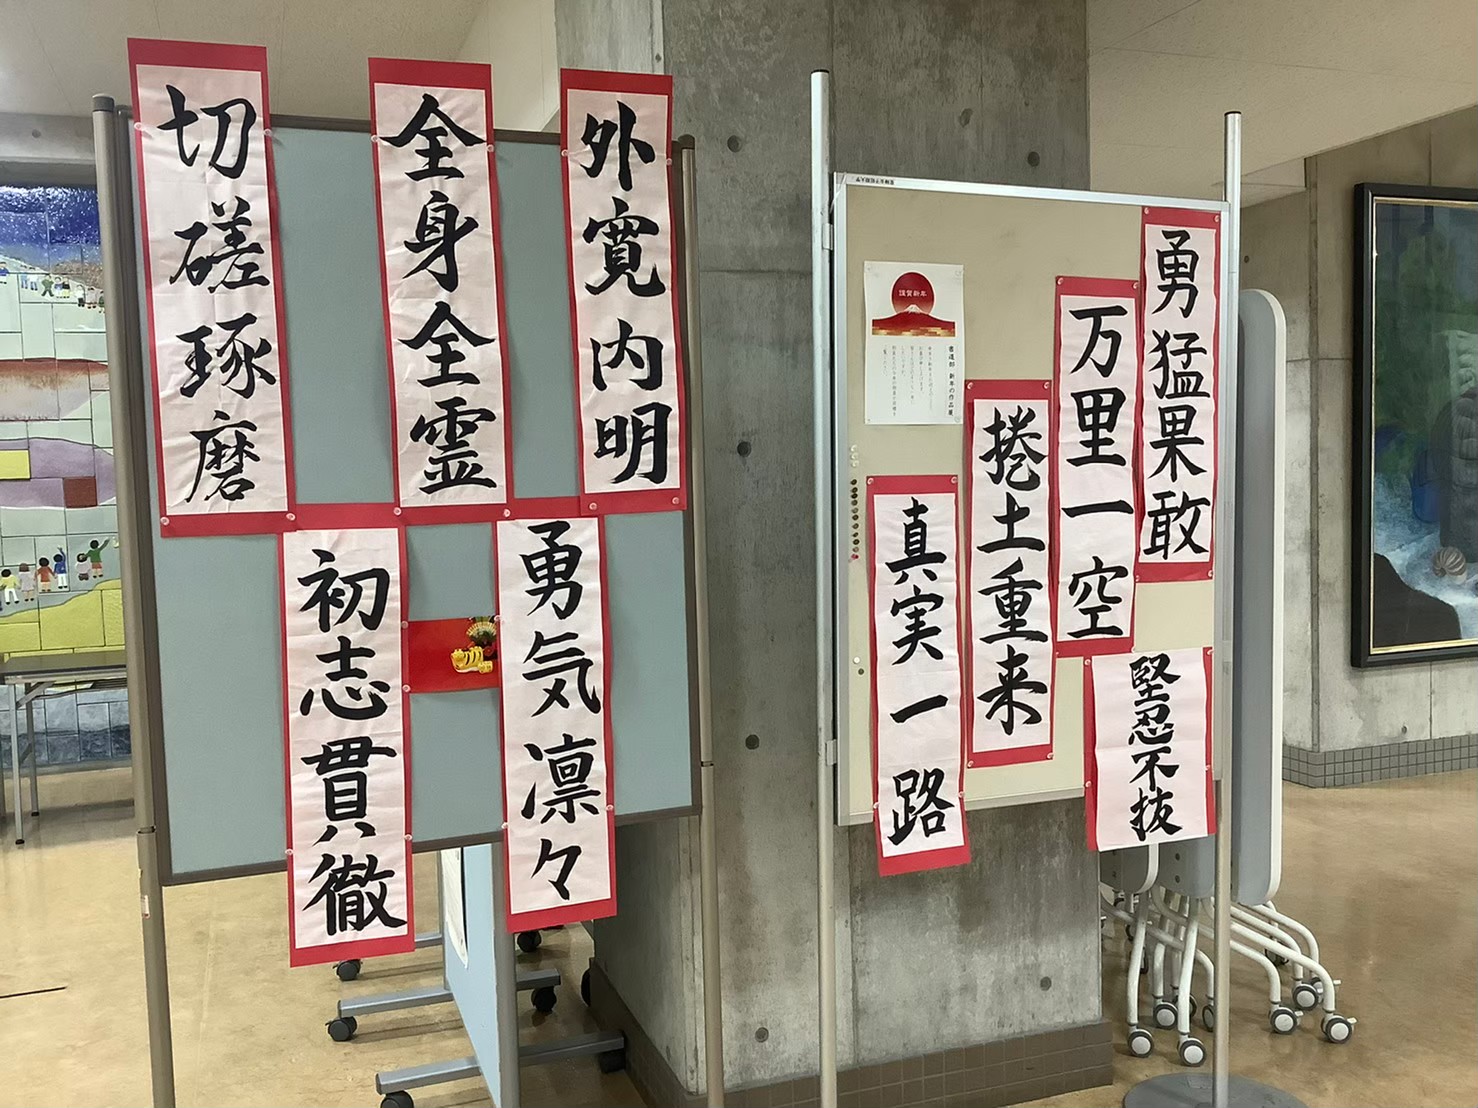 外寛内明
全身全霊
切磋琢磨
勇気凛々
初志貫徹
勇猛果敢
万里一空
捲土重来
真実一路
堅忍不抜
謹賀新年
書道部 新年の作品展